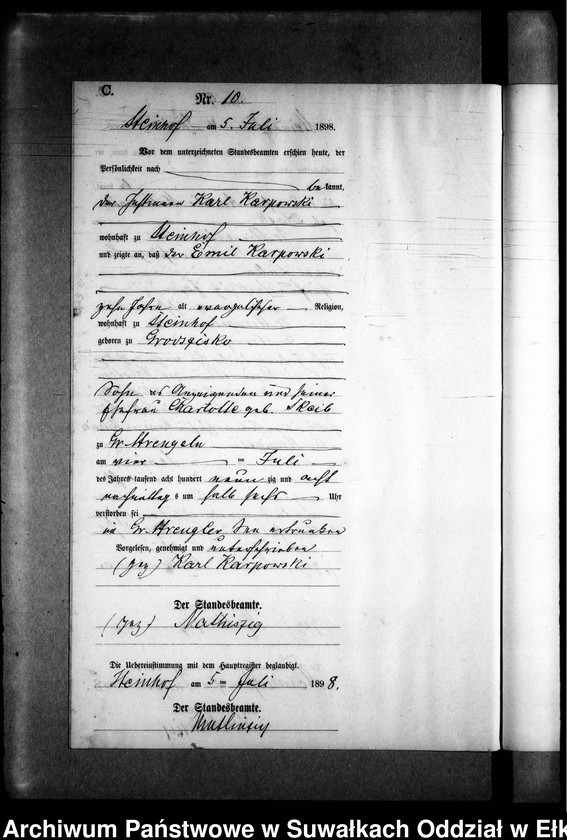 C.
Nr. 10.
Steinhof am 5. Juli 1898.
Vor dem unterzeichneten Standesbeamten erschien heute, der
Persönlichkeit nach
be kannt,
der Instmann Karl Karpowski
wohnhaft zu Steinhof
und zeigte an, daß der Emil Karpowski
zehn Jahre alt evangelischer Religion,
wohnhaft zu Steinhof
geboren zu
Sohn des Anzeigenden und seiner
Ehefrau Charlotte geb. Skeib
zu Gr. Strengeln
am vier ten Juli
des Jahres tausend acht hundert neun zig und acht
nachmittag s um halb sechs Uhr
verstorben sei
im Gr. Strengler See ertrunken
Vorgelesen, genehmigt und unterschrieben
(gez) Karl Karpowski
Der Standesbeamte.
(gez.) Mathiszig
Die Uebereinstimmung mit dem Hauptregister beglaubigt.
Steinhof am 5ten Juli 1898.
Der Standesbeamte.
Mathiszig
Archiwum Państwowe w Suwałkach Oddział w Ełk